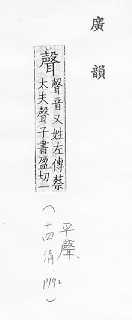 廣韻
聲聲音又姓左傳蔡
太夫聲子書盈切一
(平聲、
十四清